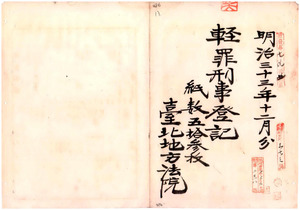 明治三十三年十二月分
輕罪刑事登記
紙數五拾參枚
臺北地方法院